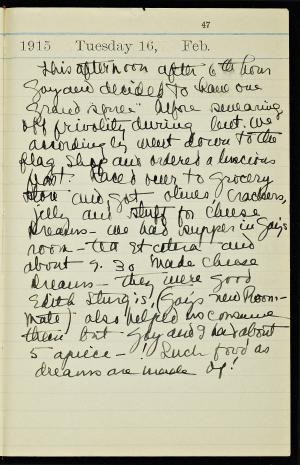 47
1915 Tuesday 16, Feb.
This afternoon after 6th hour
Gay and decided to have one
"Grand spree" before swearing
off frivolity during lent. We
accordingly went down to the
flag Shop and ordered a luscious
Raced over to Grocery
Store and got olives, crackers,
jelly and stuff for cheese
dreams - we had supper in Gay's
room - tea et cetera and
about 9.30 made cheese
dreams - they were good
Edith Sturgis, (Gay's new Room-
mate) also helped us consume
them but Gay and I had about
5 apiece - ! Such food as
dreams are made of!